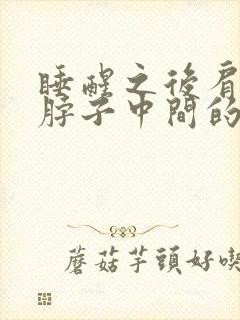 睡醒之後肩
脖子中間的
蘑菇芋頭好喫